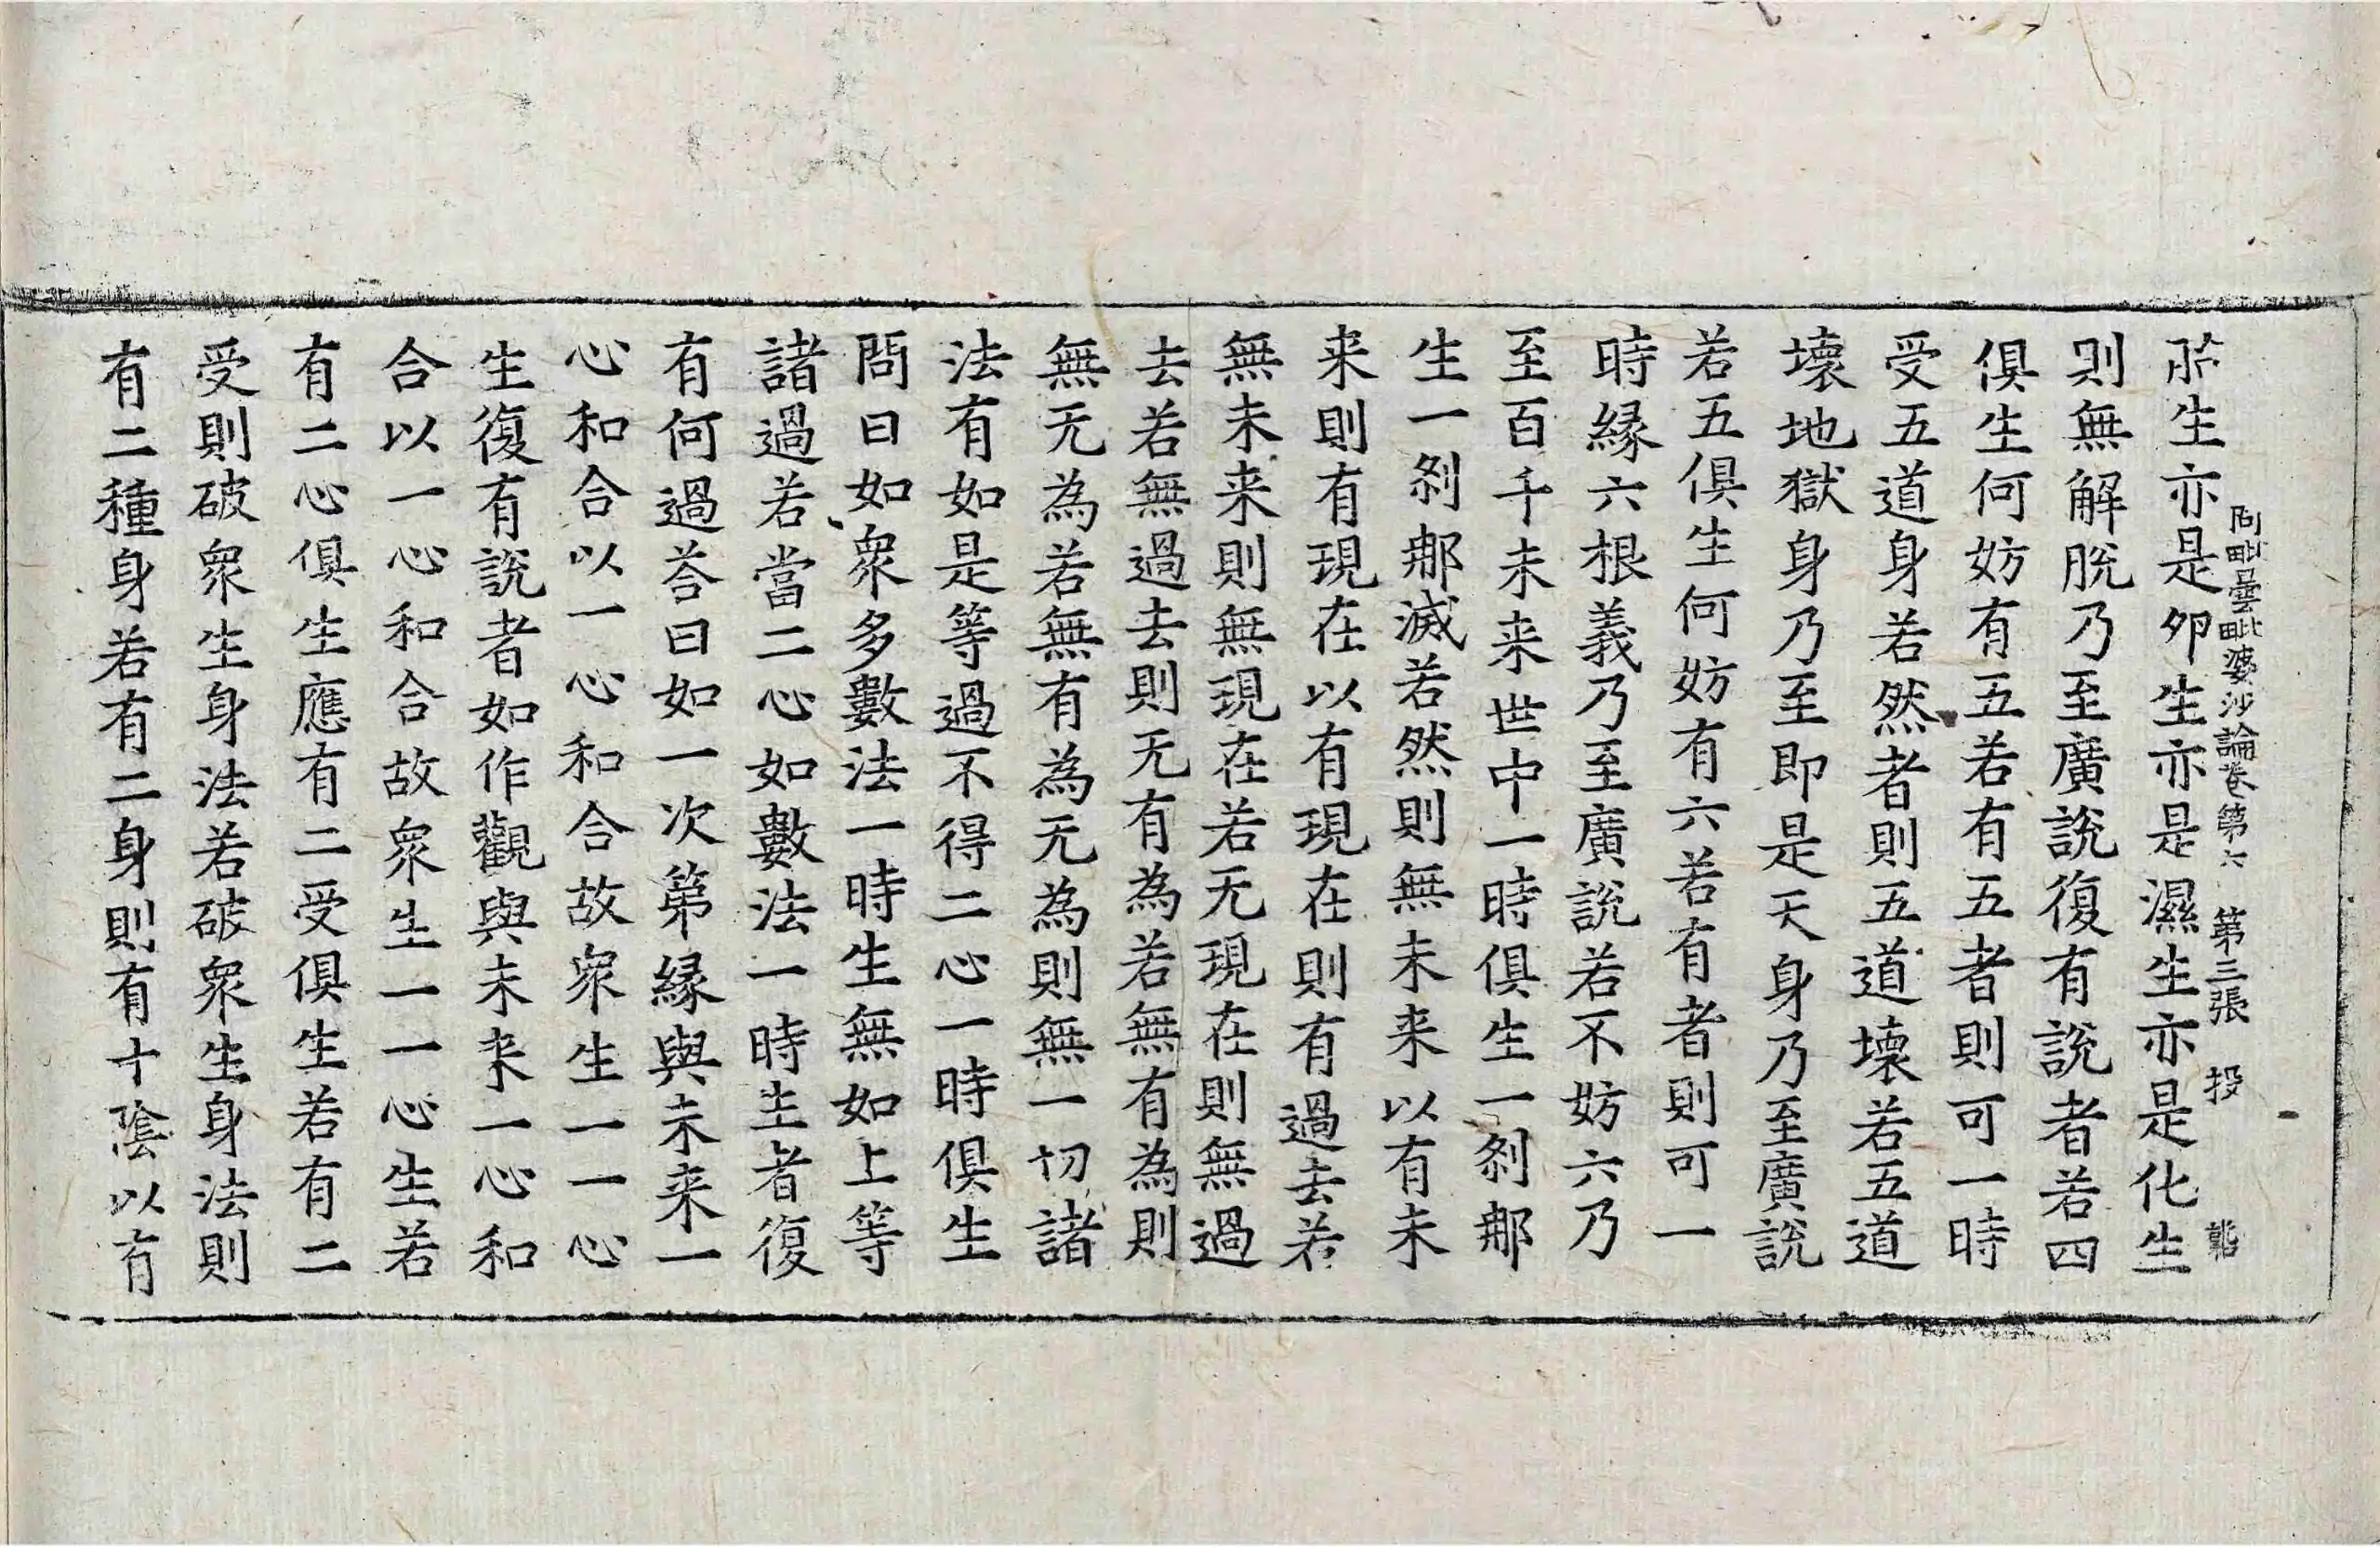 阿毗曇毗婆沙論卷第六 第三張 投
所生亦是卵生亦是濕生亦是化生
則無解脫乃至廣說復有說者若四
俱生何妨有五若有五者則可一時
受五道身若然者則五道壞若五道
壞地獄身乃至即是天身乃至廣說
若五俱生何妨有六若有者則可一
時緣六根義乃至廣說若不妨六乃
至百千未来世中一時俱生一剎那
生一剎那滅若然則無未来以有未
来則有現在以有現在則有過去若
無未来則無現在若无現在則無過
去若無過去則无有為若無有為則
無无為若無有為无為則無一切諸
法有如是等過不得二心一時俱生
問曰如衆多數法一時生無如上等
諸過若當二心如數法一時生者復
有何過荅曰如一次第緣與未来一
心和合以一心和合故衆生一一心
生復有說者如作觀與未来一心和
合以一心和合故衆生一一心生若
有二心俱生應有二受俱生若有二
受則破衆生身法若破衆生身法則
有二種身若有二身則有十陰以有